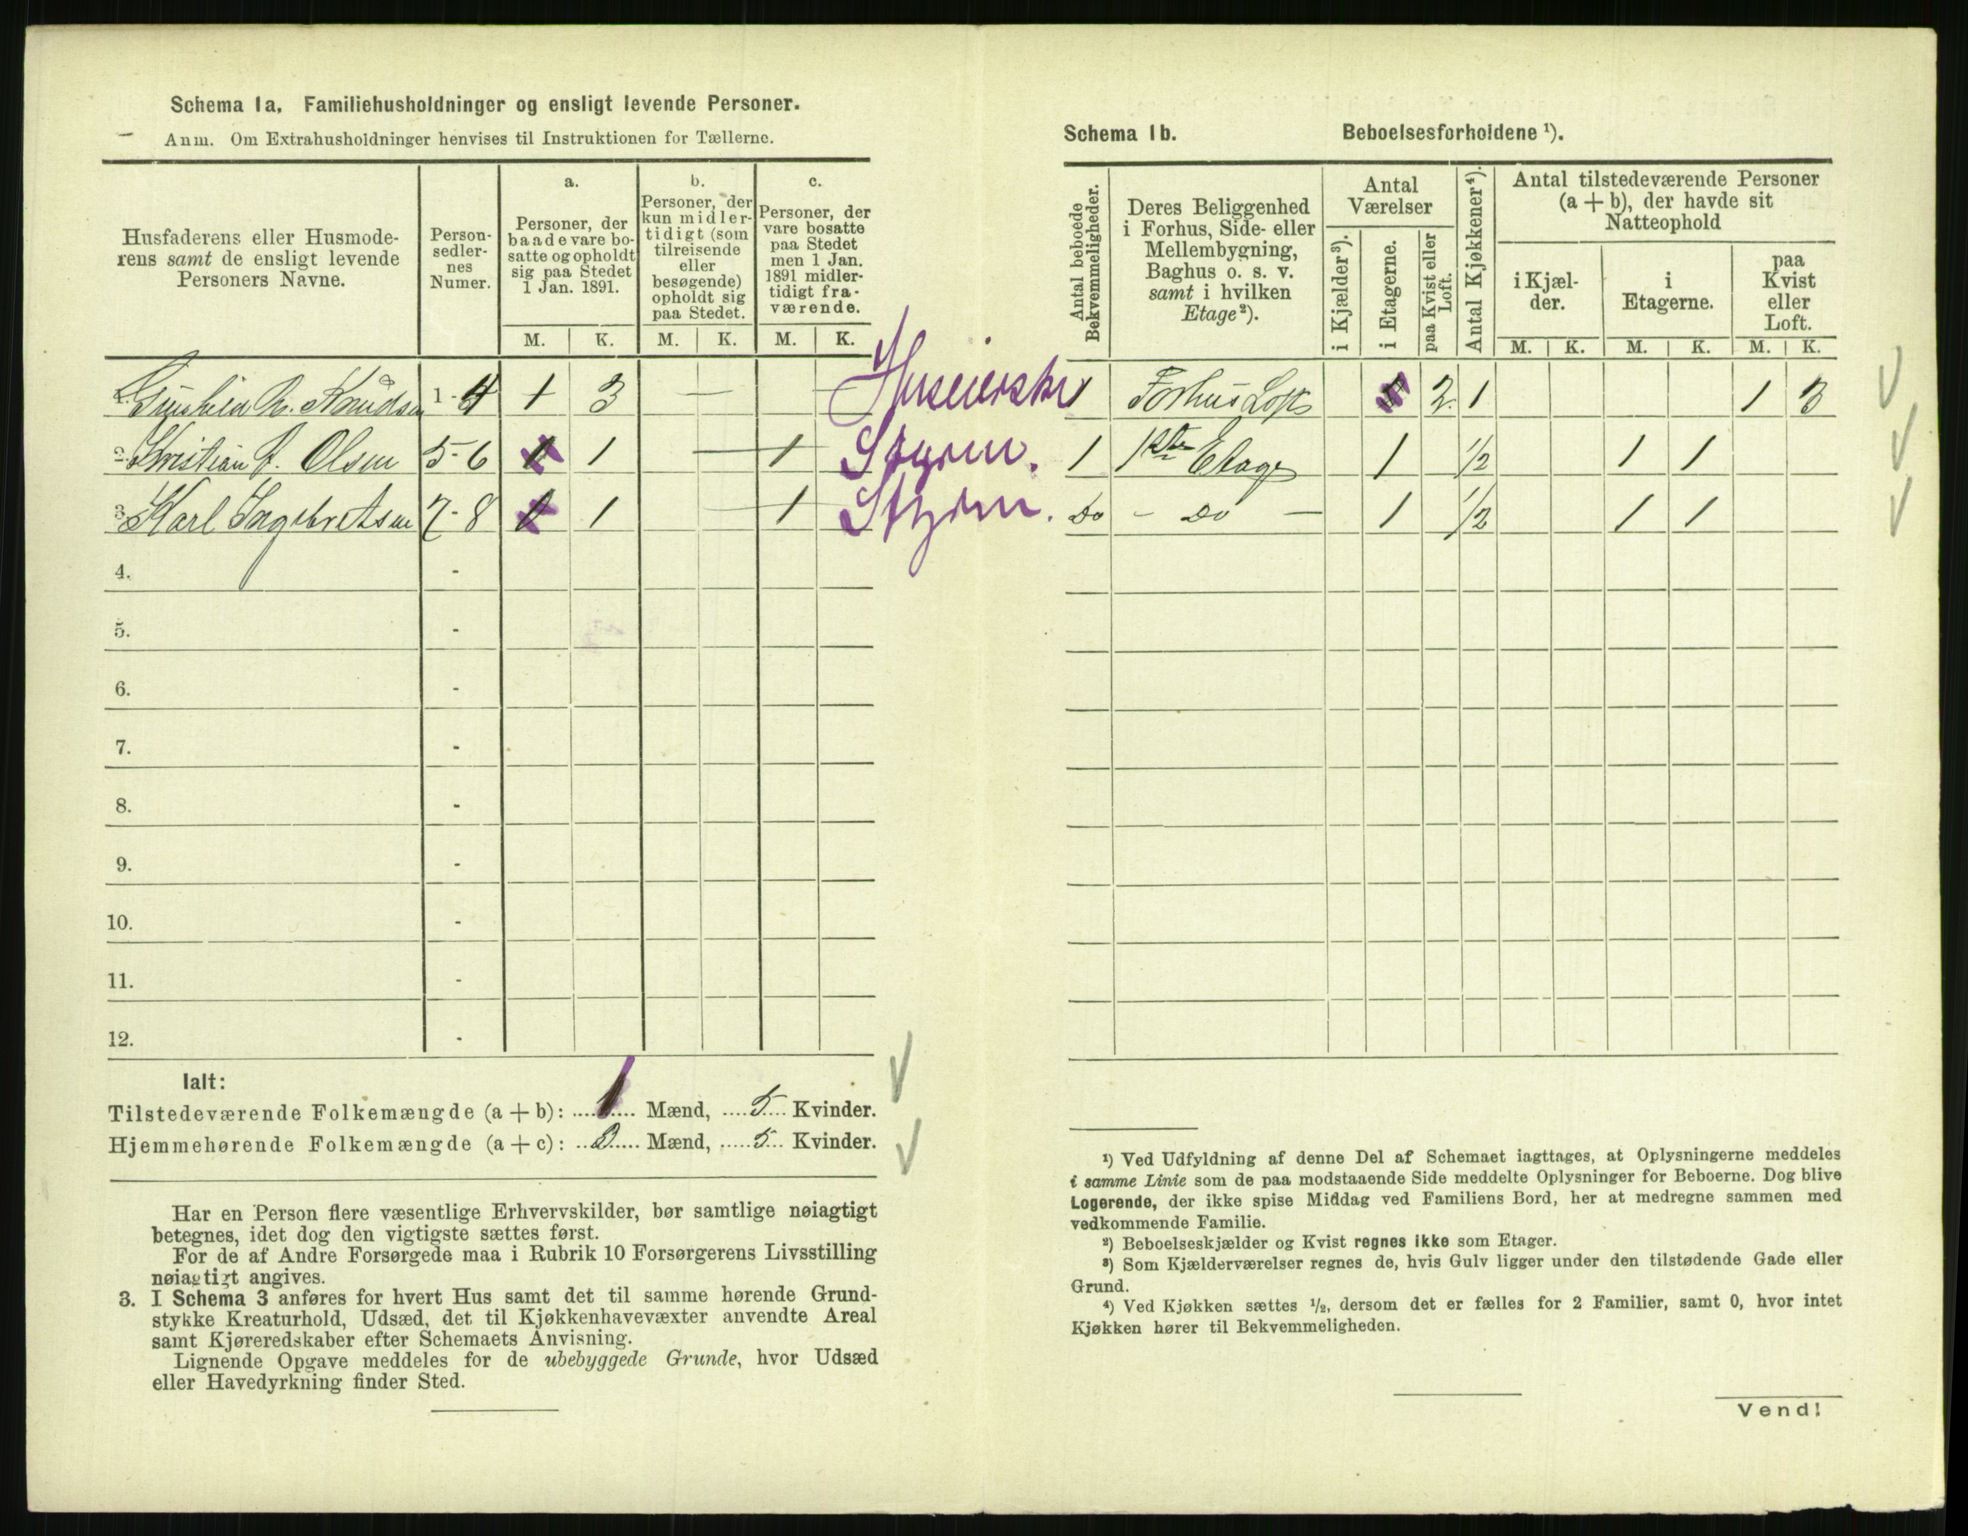 Schema 1a. Familiehusholdninger og ensligt levende Personer.
Anm. Om Extrahusholdninger henvises til Instruktionen for Tællerne.
Husfaderens eller Husmode-
rens samt de ensligt levende
Personers Navne.
Person-
sedler-
nes
Numer.
a.
Personer, der
baade vare bo-
satte og opholdt
sig paa Stedet
1 Jan. 1891.
b.
Personer, der
kun midler-
tidigt (som
tilreisende
eller
besøgende)
opholdt sig
paa Stedet.
c.
Personer, der
vare bosatte
paa Stedet
men 1 Jan.
1891 midler-
tidigt fra-
værende.
M. K. M. K. M. K.
1. N. Knudsen 1-4 1 3 —
2. Kristian J. Olsen 5-6 1 — 1
3. Karl Ingebretsen 7-8 1 — 1
4. -
5. -
6. -
7. -
8. -
9. -
10. -
11. -
12. -
Ialt:
Tilstedeværende Folkemængde (a + b): 1 Mænd, 5 Kvinder.
Hjemmehørende Folkemængde (a + c): Mænd, 5 Kvinder.
Har en Person flere væsentlige Erhvervskilder, bør samtlige nøiagtigt
betegnes, idet dog den vigtigste sættes først.
For de af Andre Forsørgede maa i Rubrik 10 Forsørgerens Livsstilling
nøiagtigt angives.
3. I Schema 3 anføres for hvert Hus samt det til samme hørende Grund-
stykke Kreaturhold, Udsæd, det til Kjøkkenhavevæxter anvendte Areal
samt Kjøreredskaber efter Schemaets Anvisning.
Lignende Opgave meddeles for de ubebyggede Grunde, hvor Udsæd
eller Havedyrkning finder Sted.
Schema 1b. Beboelsesforholdene ¹).
Antal beboede
Bekvemmeligheder.
Deres Beliggenhed
i Forhus, Side- eller
Mellembygning,
Baghus o. s. v.
samt i hvilken
Etage²).
Antal
Værelser
i Kjælder³).
i Etagerne.
paa Kvist eller
Loft.
Antal Kjøkkener⁴).
Antal tilstedeværende Personer
(a + b), der havde sit
Natteophold
i Kjæl-
der.
i
Etagerne.
paa
Kvist
eller
Loft.
M. K. M. K. M. K.
1 Forhus Loft 2 1 1 3
Styrm. 1 1ste Etage 1 1/2 1 1
Styrm. Do - Do - 1 1/2 1 1
¹) Ved Udfyldning af denne Del af Schemaet iagttages, at Oplysningerne meddeles
i samme Linie som de paa modstaaende Side meddelte Oplysninger for Beboerne. Dog blive
Logerende, der ikke spise Middag ved Familiens Bord, her at medregne sammen med
vedkommende Familie.
²) Beboelseskjælder og Kvist regnes ikke som Etager.
³) Som Kjælderværelser regnes de, hvis Gulv ligger under den tilstødende Gade eller
Grund.
⁴) Ved Kjøkken sættes ½, dersom det er fælles for 2 Familier, samt 0, hvor intet
Kjøkken hører til Bekvemmeligheden.
Vend!